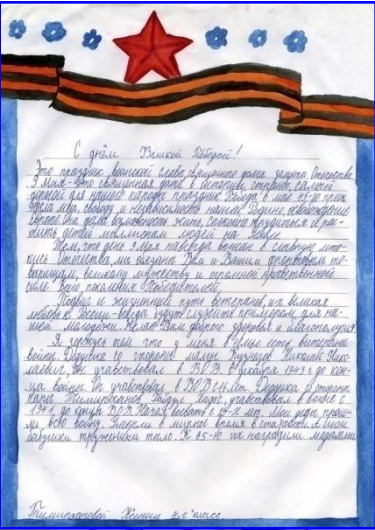 С днём Великой Победой!
Это праздник воинской славы, священного долга защиты Отечества.
9 мая - это священная дата в истории страны, самый
для нашего народа праздник. Победа в мае 45-го
свободу и независимость нашей Родине, освобождение
возможность жить, спокойно трудиться и
детей миллионам людей на Земле.
Тем, что день 9 мая навсегда вписан в славную лето-
пись Отечества, мы обязаны Вам и Вашим фронтовым то-
варищам, великому мужеству и огромной нравственной
силе Всего поколения Победителей.
Подвиг и жизненный путь ветеранов, их великая
любовь к России всегда будут служить примером для на-
шей молодёжи. Желаю Вам доброго здоровья и благополучия.
Я горжусь тем что у меня в семье есть ветераны
войны. Дедушка со стороны мамы Кузнецов Николай Нико-
лаевич, он участвовал в В.О.В. с декабря 1943 г до кон-
ца войны. Он участвовал в ВОВ с 16 лет. Дедушка со стороны
папы Тимирханов участвовал в войне с
1941 до конца В.О.В. Начал воевать с лет. Мои деды прош-
ли всю войну. Умерли в мирное время в старости. А мои
бабушки труженики тыла. К 65-ю их наградили медалями
Тимирхановой Ксении 4 "г" класс.